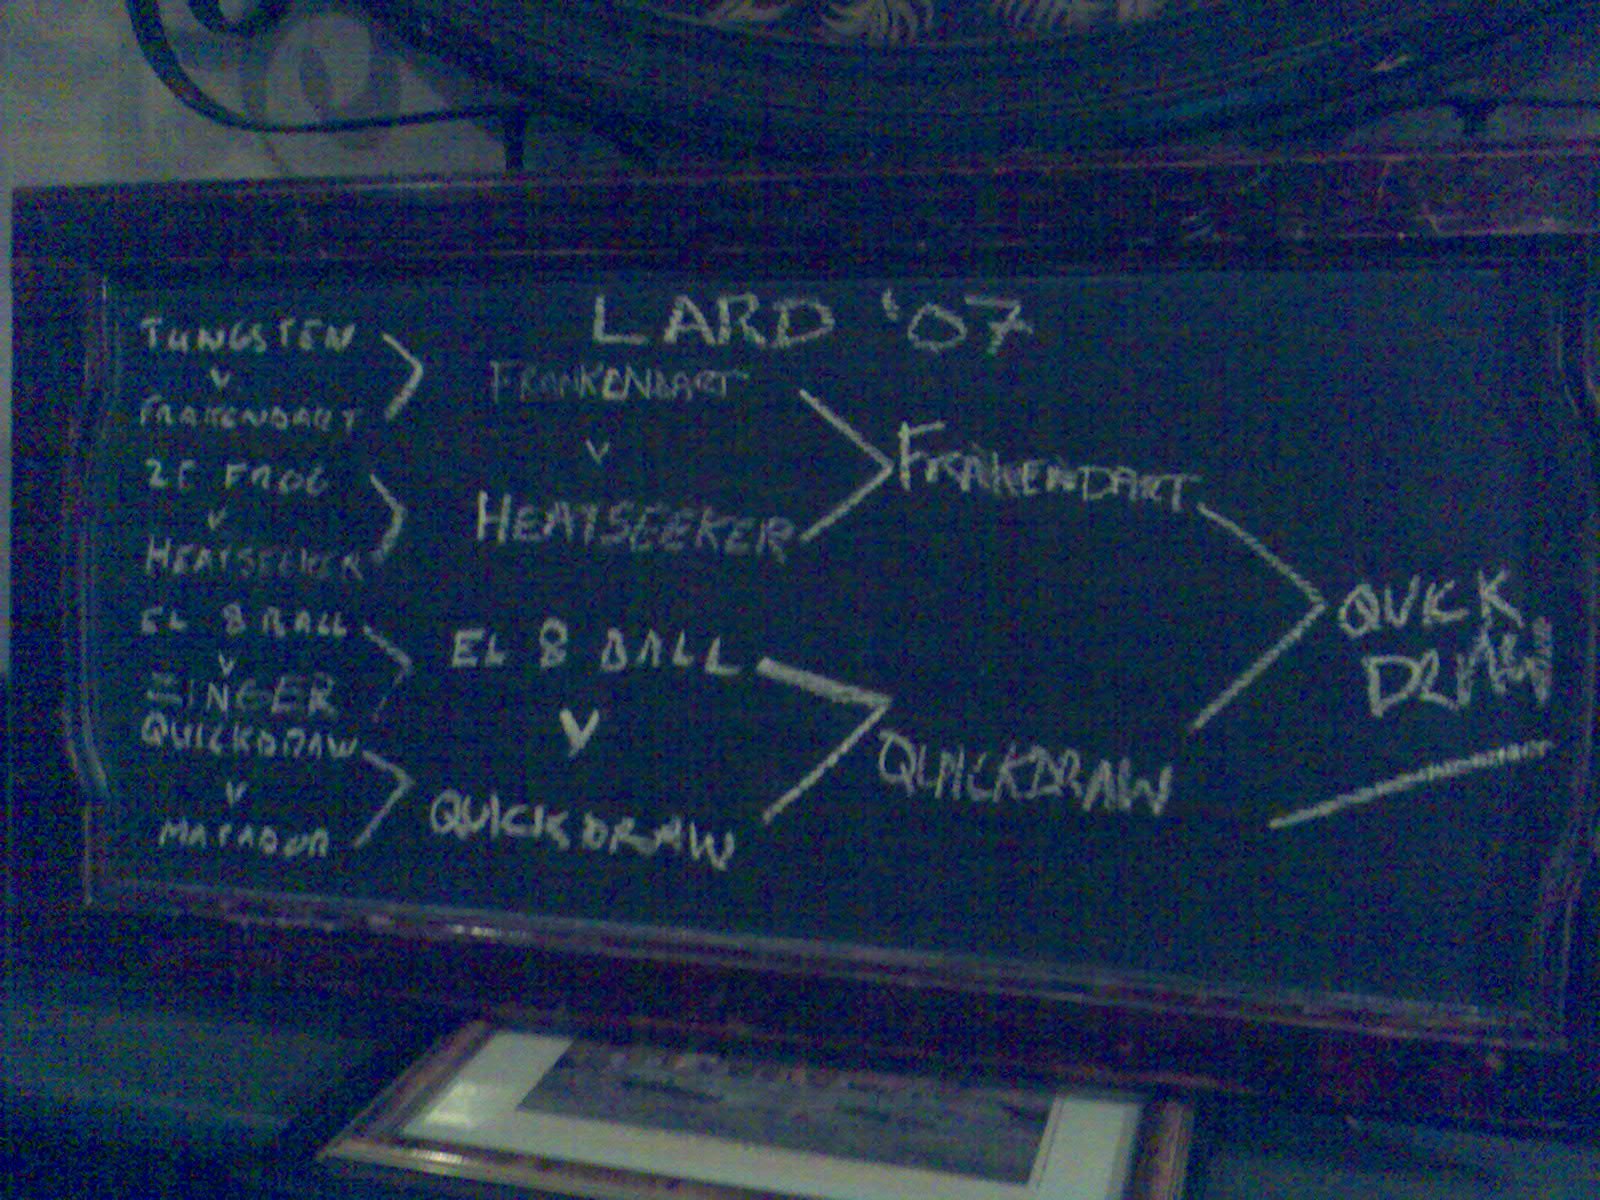 LARD '07
TUNGSTEN
V
FRAKENDART
2C FROG
V
HEATSEEKER
EL 8 BALL
V
ZINGER
QUICKDRAW
V
MATADOR
FRANKENDART
V
HEATSEEKER
EL 8 BALL
V
QUICKDRAW
FRAKENDART
QUICKDRAW
QUICK
DRAW